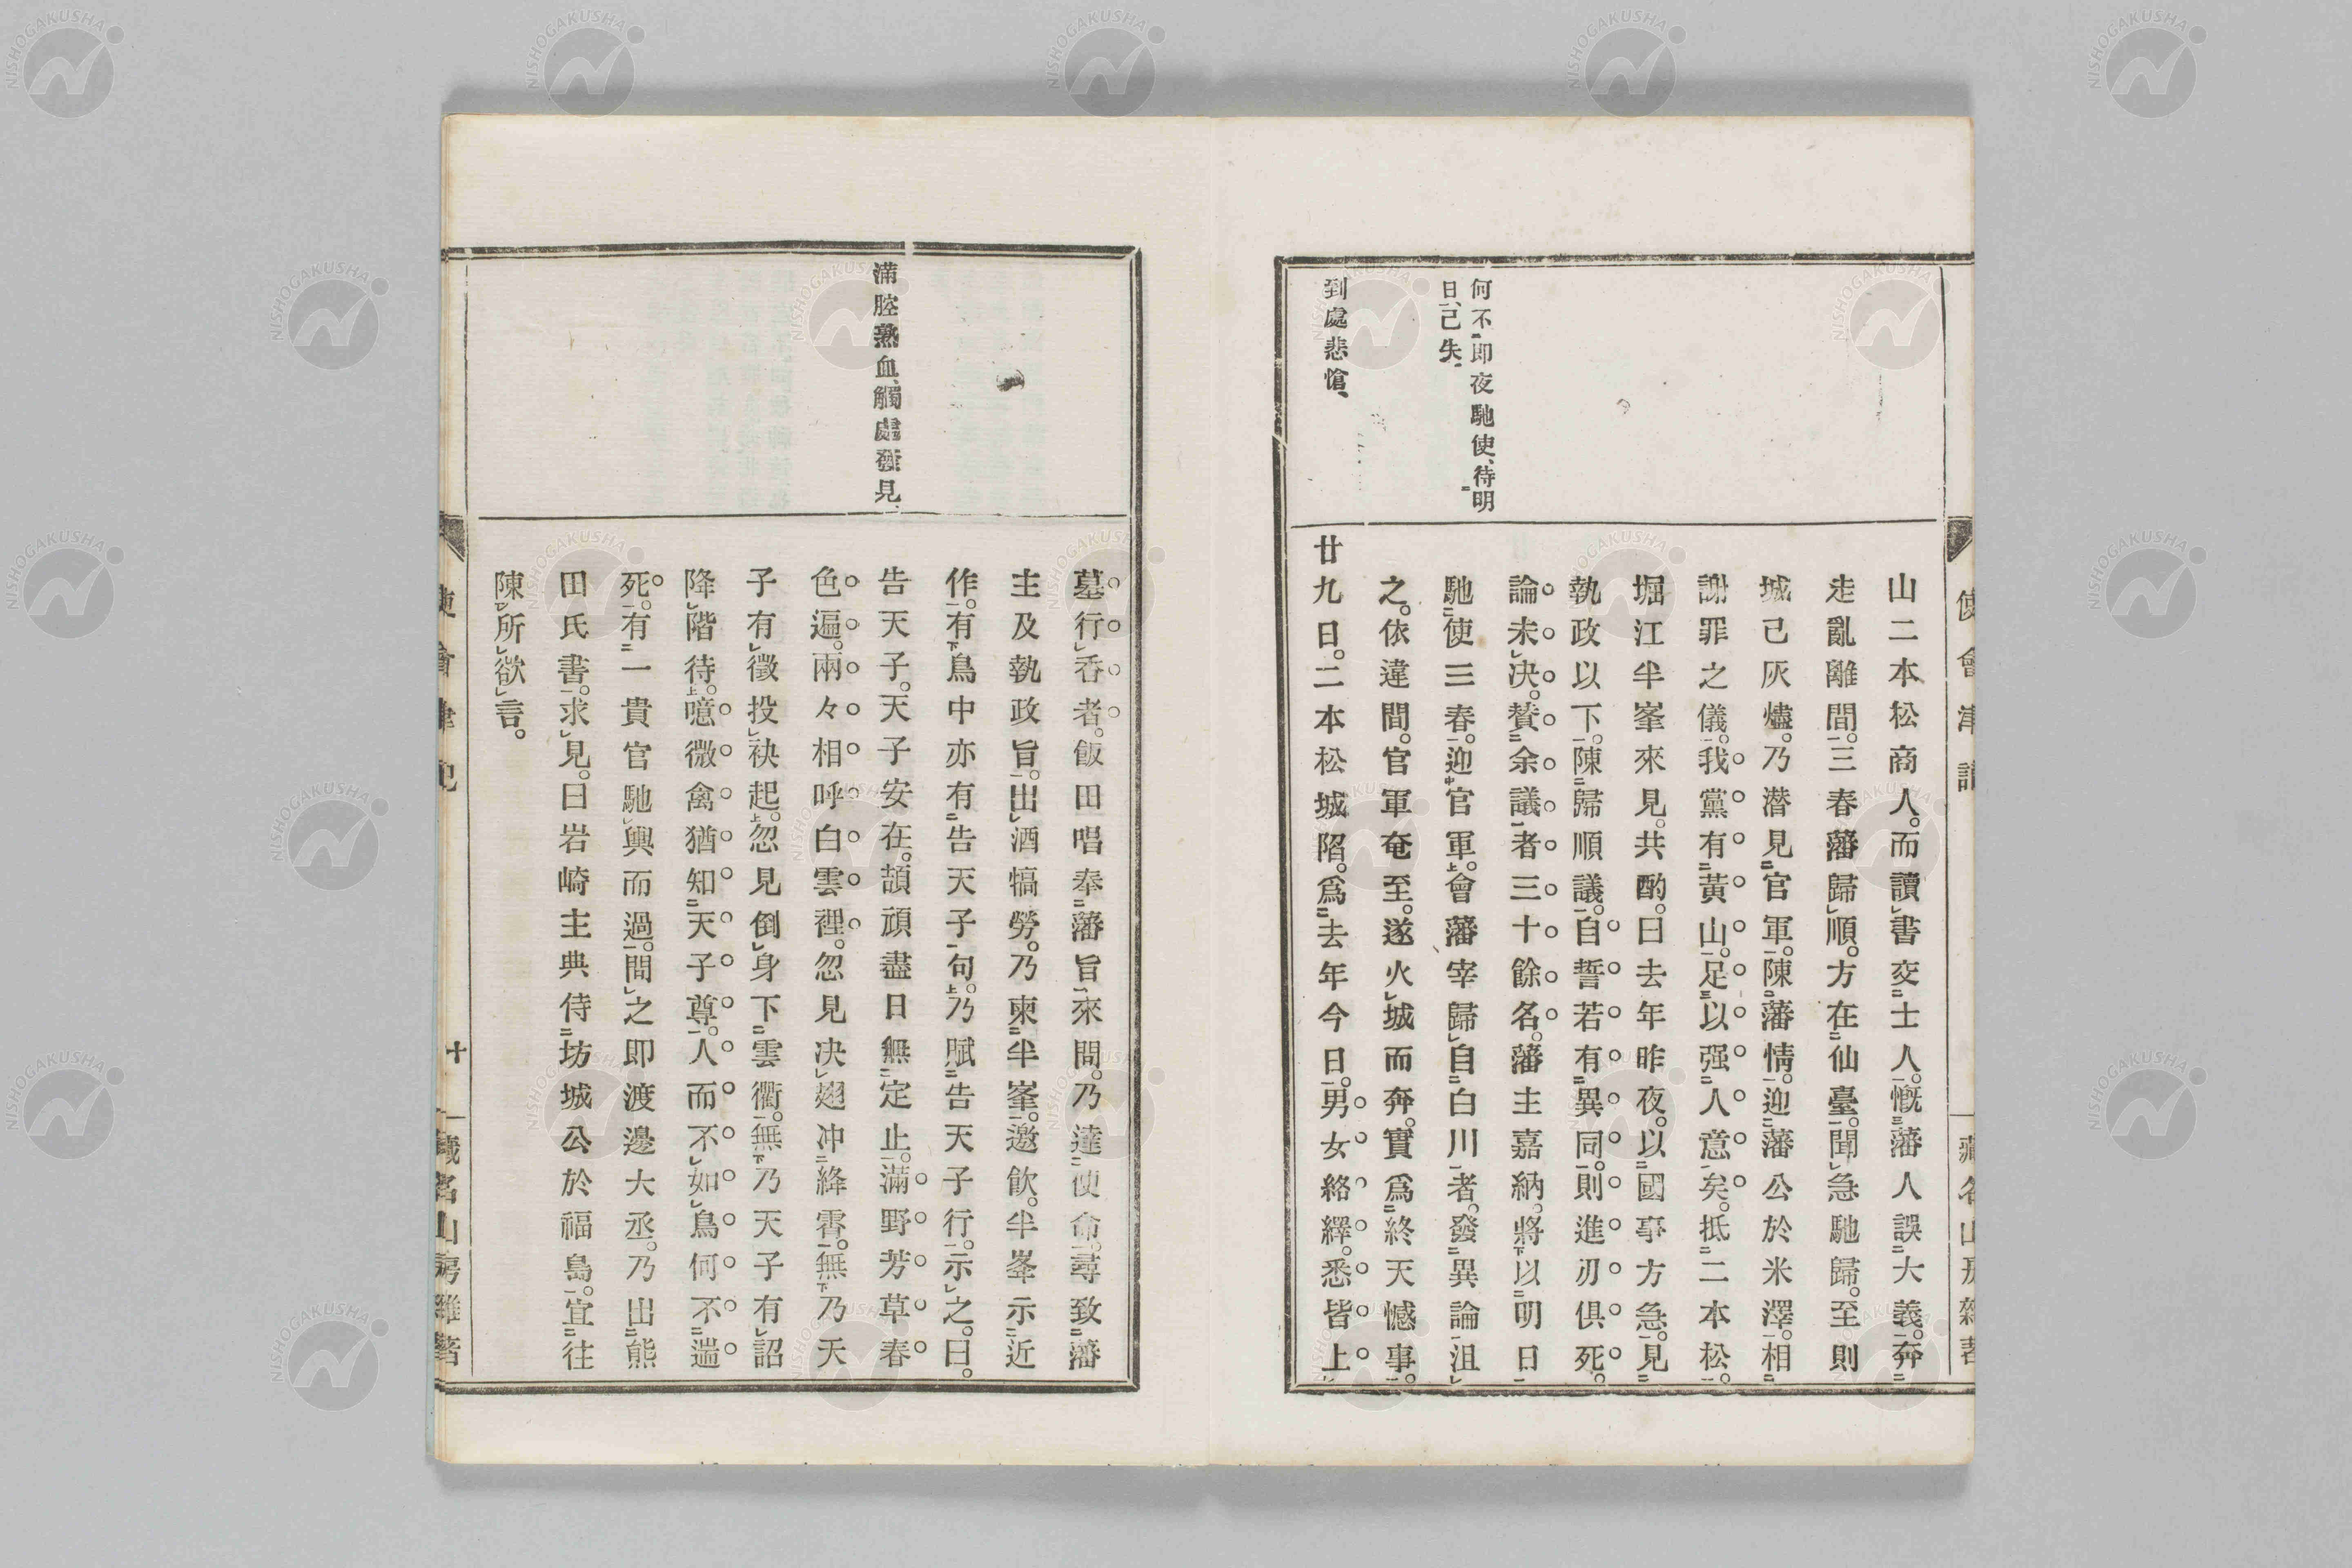 使會津記
藏名山房雜著
何不即夜馳使、待明
日、己失
到處悲愴、
山二本松商人。而讀書交士人。慨藩人誤大義。奔
走亂離間。三春藩歸順。方在仙臺。聞急馳歸。至則
城已灰燼。乃潜見官軍。陳藩情。迎藩公於米澤。相
謝罪之儀。我黨有黃山。足以强人意矣。抵二本松。
堀江半峯來見。共酌。曰去年昨夜。以國事方急。見
執政以下。陳歸順議。自誓若有異同。則進刃俱死。
論未决。賛余議者三十餘名。藩主嘉納。將以明日
馳使三春。迎官軍。會藩宰歸自白川者。發異論沮
之。依違間。官軍奄至。遂火城而奔。實爲終天憾事。
廿九日。二本松城陷。爲去年今日。男女絡繹。悉皆上
滿腔熱血、觸處發見、
墓行香者。飯田唱奉藩旨來問。乃達使命。尋致藩
主及執政旨。出酒犒勞。乃柬半峯。邀飲。半峯示近
作。有鳥中亦有告天子句。乃賦告天子行。示之。曰。
告天子。天子安在。頡頏盡日無定止。滿野芳草春
色遍。兩々相呼白雲裡。忽見决翅冲絳霄。無乃天
子有徵投袂起。忽見倒身下雲衢。無乃天子有詔
降階待。噫微禽猶知天子尊。人而不如鳥何不遄
死。有一貴官馳輿而過。問之即渡邊大丞。乃出熊
田氏書。求見。曰岩崎主典侍坊城公於福島。宜往
陳所欲言。
使會津記
十
藏名山房雜著